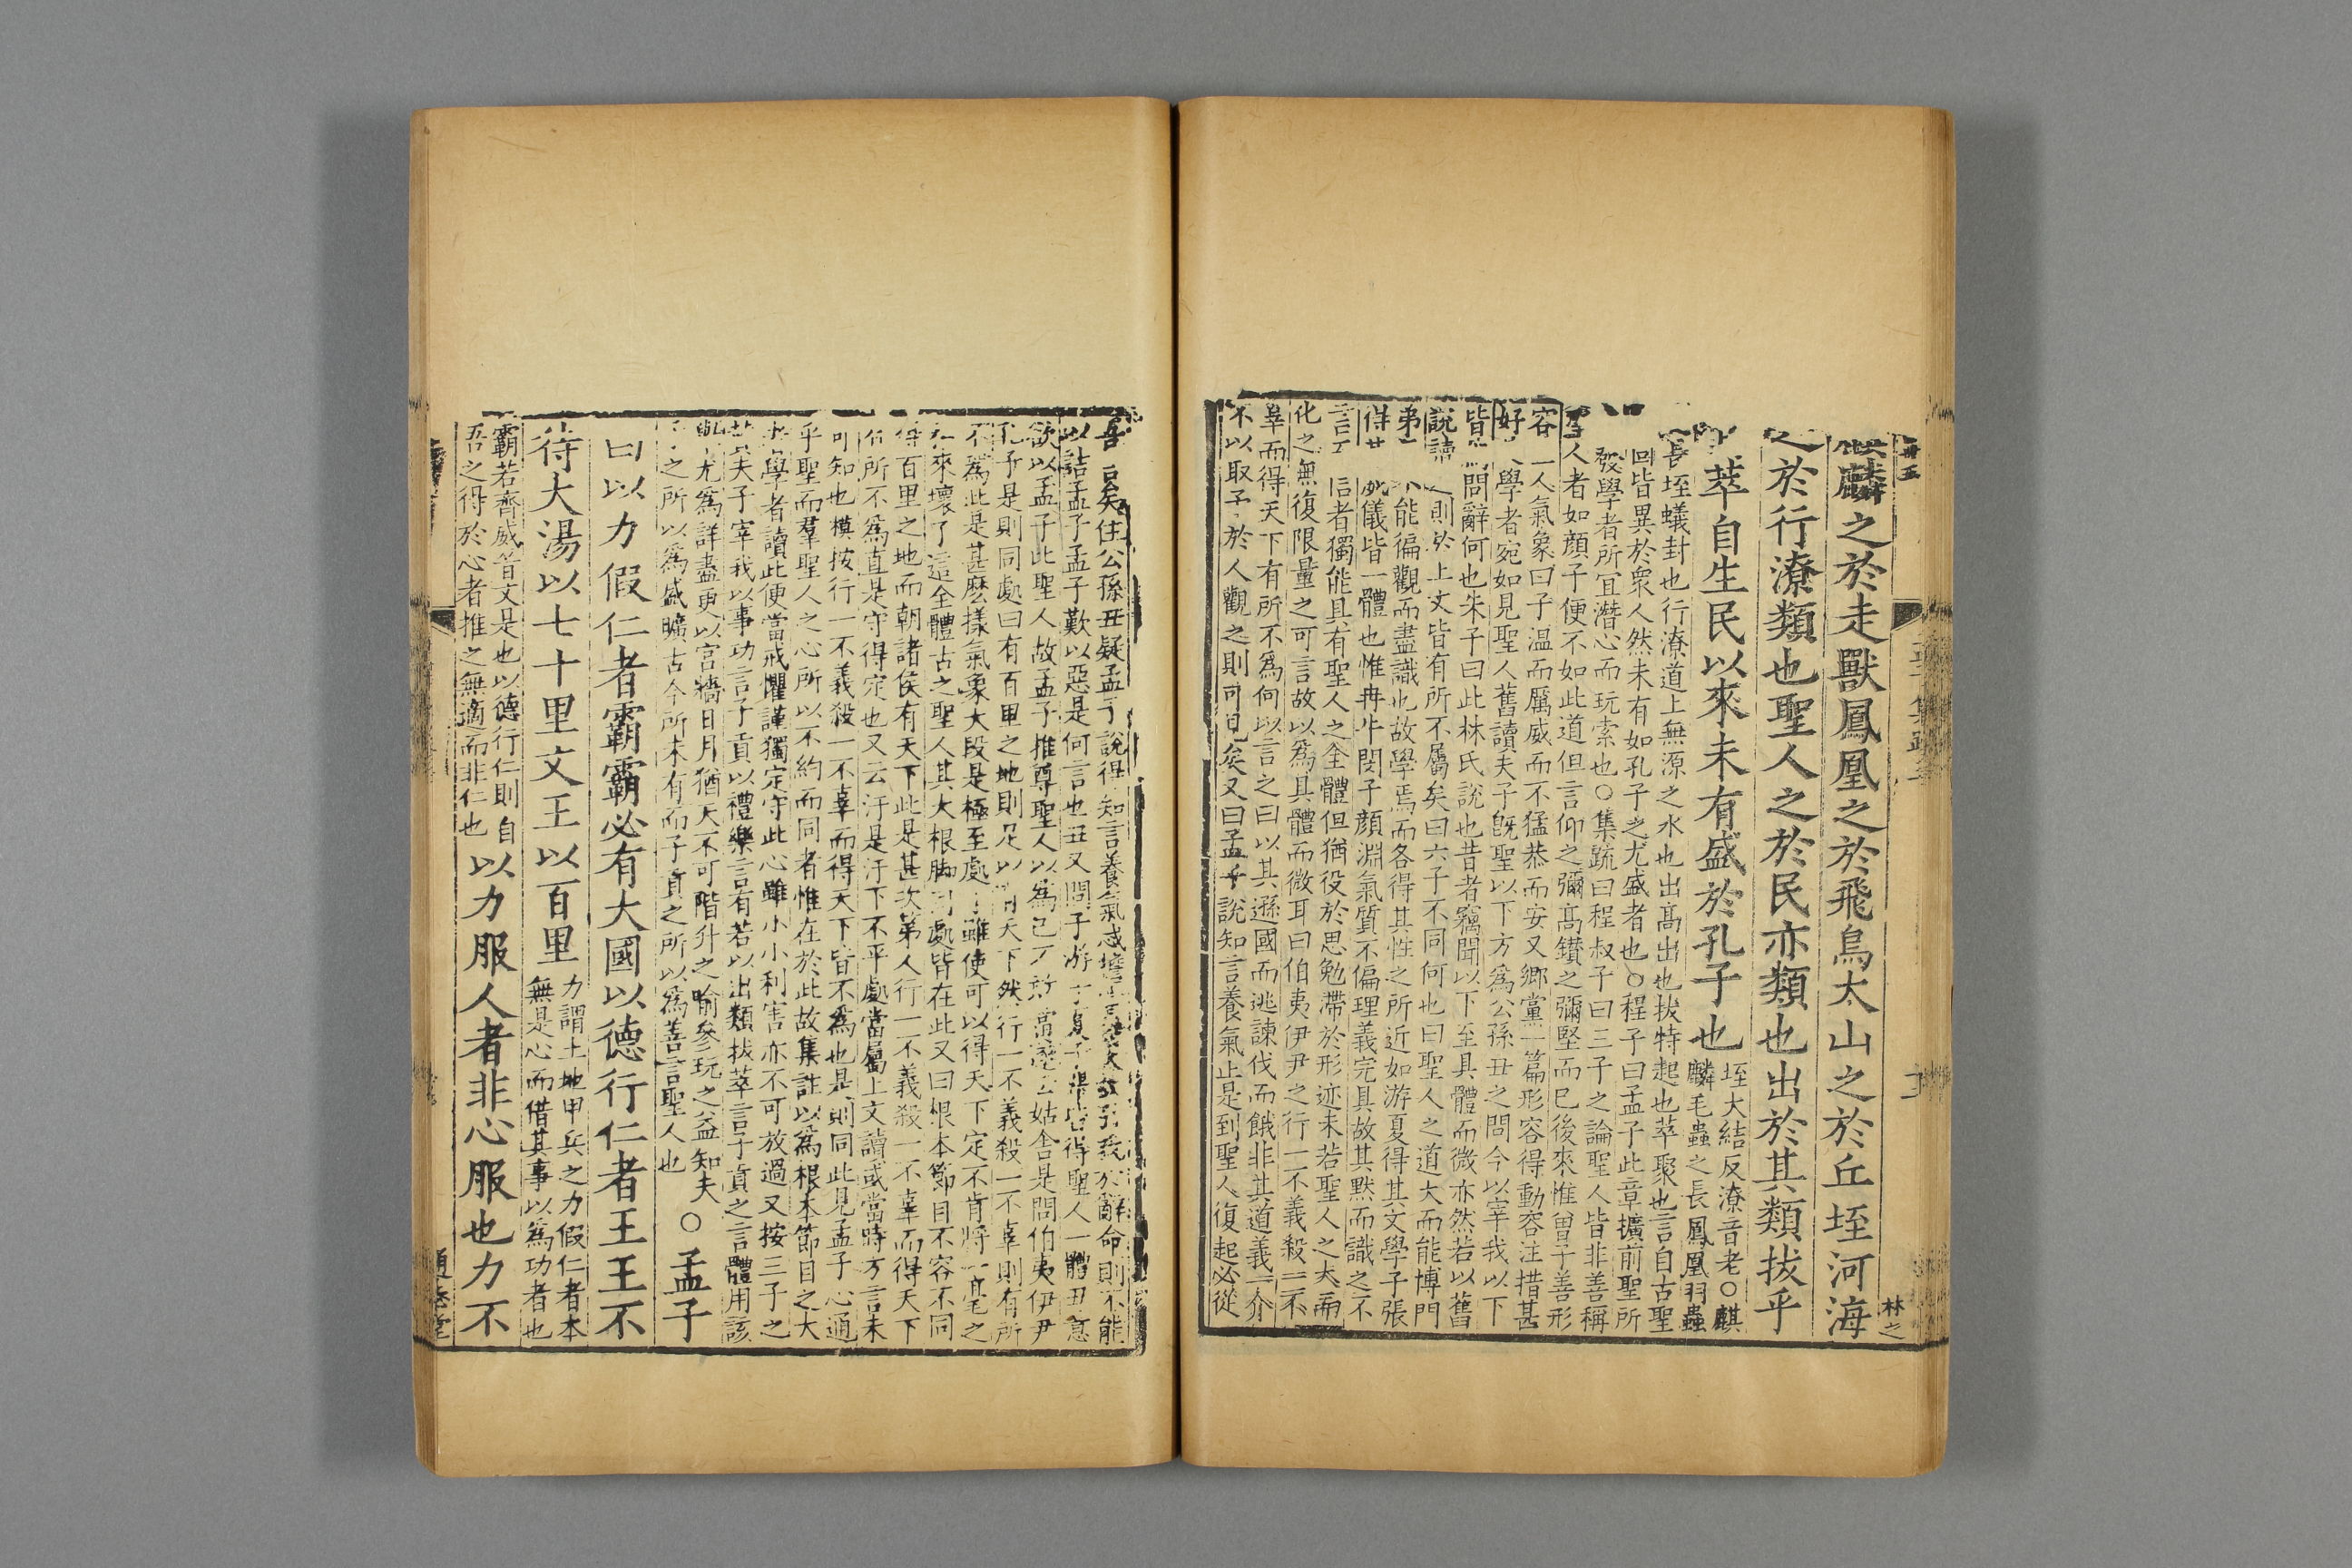 麒麟之於走獸鳳凰之於飛鳥太山之於丘垤河海
之於行潦類也聖人之於民亦類也出於其類拔乎
萃自生民以來未有盛於孔子也
垤大結反潦音老○麒
麟毛蟲之長鳳凰羽蟲
長垤蟻封也行潦道上無源之水也出高出也拔特起也萃聚也言自古聖
回皆異於衆人然未有如孔子之尤盛者也○程子曰孟子此章擴前聖所
發學者所宜潛心而玩索也○集疏曰程叔子曰三子之論聖人皆非善稱
聖人者如顔子便不如此道但言仰之彌高鑚之彌堅而已後來惟曾子善形
容 一人氣象曰子温而厲威而不猛恭而安又鄉黨一篇形容得動容注措甚
好 學者宛如見聖人舊讀夫子旣聖以下方爲公孫丑之問今以宰我以下
皆 問辭何也朱子曰此林氏說也昔者竊聞以下至具體而微亦然若以舊
說讀 則 上文皆有所不屬矣曰六子不同何也曰聖人之道大而能博門
弟 能偏觀而盡識也故學焉而各得其性之所近如游夏得其文學子張
得其 儀皆一體也惟冉牛閔子顔淵氣質不偏理義完具故其黙而識之不
言 信者獨能具有聖人之全體但猶役於思勉滯於形迹未若聖人之大而
化之無復限量之可言故以爲具體而微耳曰伯夷伊尹之行一不義殺一不
辜而得天下有所不爲何以言之曰以其遜國而逃諫伐而餓非其道義一介
不以取予於人觀之則可見矣又曰孟子說知言養氣止是到聖人復起必從
吾言矣住公孫丑疑孟子說得知言養氣忒 於辭命則不能
以詰孟子孟子歎以惡是何言也丑又問子游 皆得聖人一體丑意
欲以孟子此聖人故孟子推尊聖人以爲己 姑舍是問伯夷伊尹
孔子是則同處曰有百里之地則足以 天下然行一不義殺一不辜則有所
不爲此是甚麽樣氣象大段是極至處 雖使可以得天下定不肯將一毫之
來壞了這全體古之聖人其大根脚 處皆在此又曰根本節目不容不同
得百里之地而朝諸侯有天下此是甚次第人行一不義殺一不辜而得天下
有所不爲直是守得定也又云汙是汙下不平處當屬上文讀或當時方言未
可知也模按行一不義殺一不辜而得天下皆不爲也是則同此見孟子心通
乎聖而羣聖人之心所以不約而同者惟在於此故集註以爲根本節目之大
學者讀此便當戒懼謹獨定守此心雖小小利害亦不可放過又按三子之
夫子宰我以事功言子貢以禮樂言有若以出類拔萃言子貢之言體用該
尤爲詳盡更以宮牆日月猶天不可階升之喻參玩之益知夫
之所以爲盛曠古今所未有而子貢之所以爲善言聖人也
○孟子
曰以力假仁者霸霸必有大國以德行仁者王王不
待大湯以七十里文王以百里
力謂土地甲兵之力假仁者本
無是心而借其事以爲功者也
霸若齊威晉文是也以德行仁則自
吾之得於心者推之無適而非仁也
以力服人者非心服也力不
林之